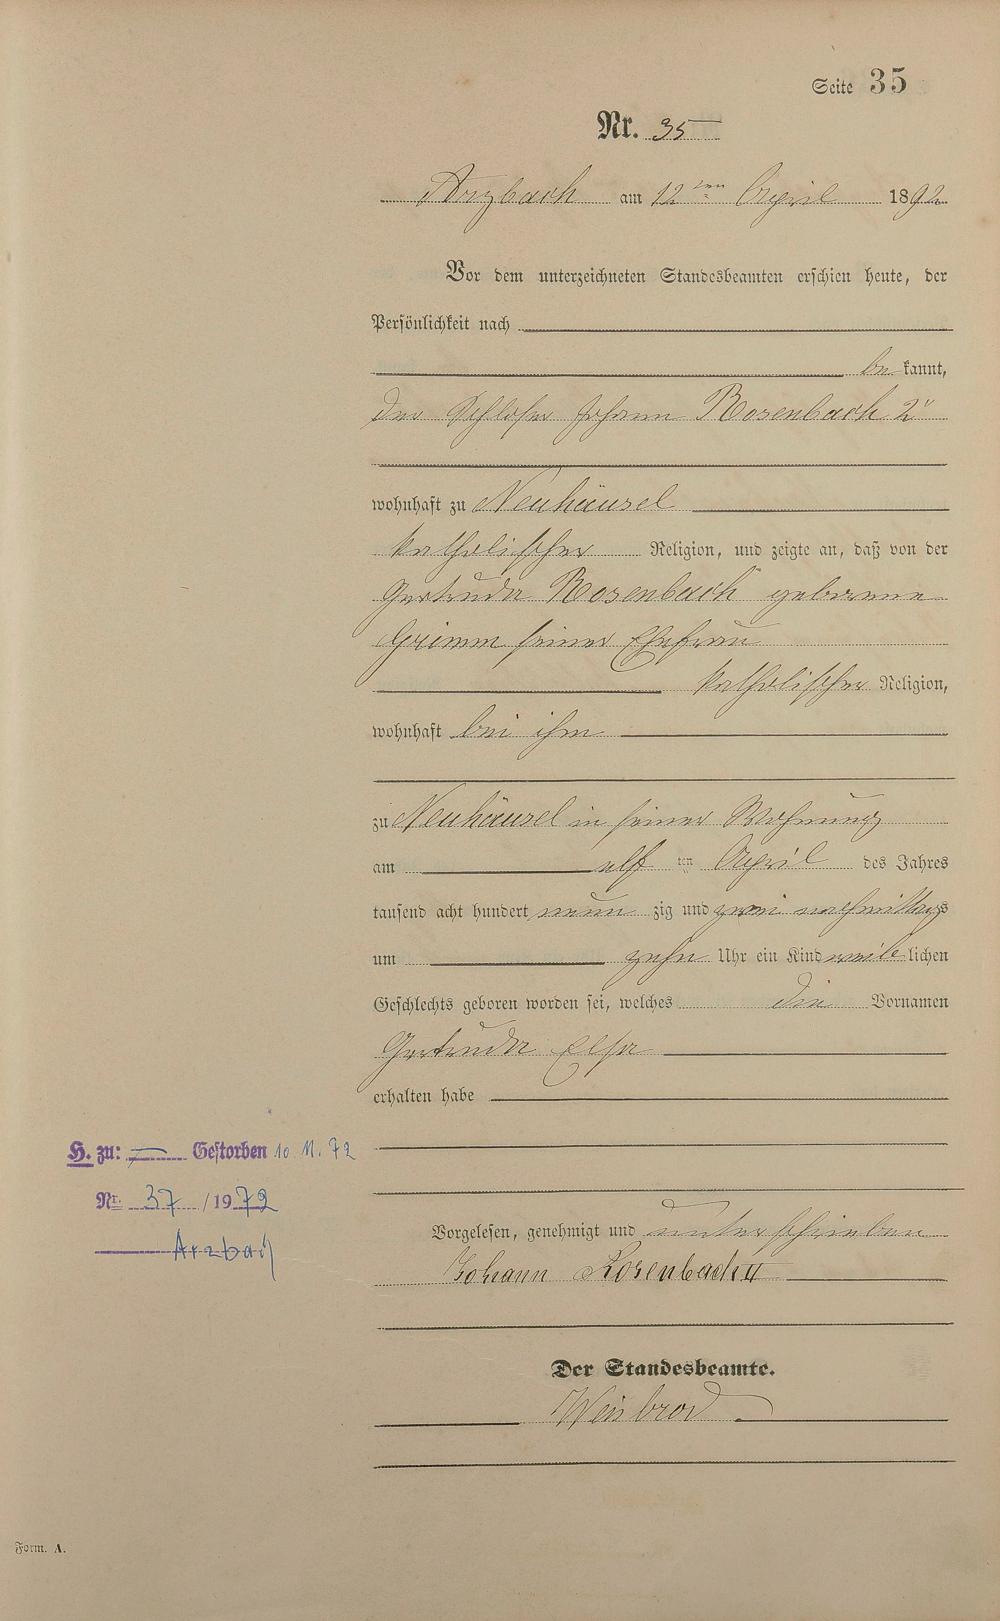 Seite 35
Nr. 35
Arzbach am 12ten April 1892
Vor dem unterzeichneten Standesbeamten erschien heute, der
Persönlichkeit nach
be kannt,
der Schlosser Johann Rosenbach 2r
wohnhaft zu Neuhäusel
katholischer Religion, und zeigte an, daß von der
Gertruda Rosenbach geborene
Grimm seiner Ehefrau
katholischer Religion,
wohnhaft bei ihm
zu Neuhäusel in seiner Wohnung
am elf ten April des Jahres
tausend acht hundert neun zig und zwei nachmittags
um zehn Uhr ein Kind weiblichen
Geschlechts geboren worden sei, welches die Vornamen
Gertruda Elsa
erhalten habe
H. zu: Gestorben 10. 11. 72
Nr. 37 /1972
Arzbach
Vorgelesen, genehmigt und unterschrieben
Johann Rosenbach II
Der Standesbeamte.
Weisbrod
Form. A.